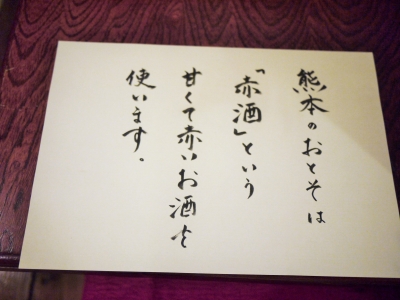 熊本のおとそは
「赤酒」という
甘くて赤いお酒を
使います。